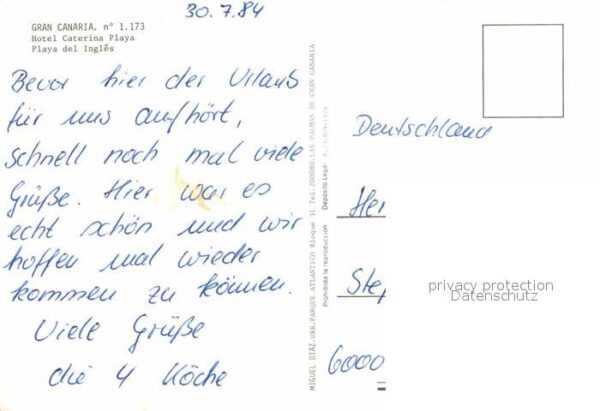 30.7.84
GRAN CANARIA. nº 1.173
Hotel Caterina Playa
Playa del Inglés
Bevor hier der Urlaub
für uns aufhört,
schnell noch mal viele
Grüße. Hier war es
echt schön und wir
hoffen mal wieder
kommen zu können.
Viele Grüße
die 4 Köche
MIGUEL DIAZ.URB.PARQUE ATLANTICO Bloque 31 LAS PALMAS DE GRAN CANARIA
Prohibida la reproducción
Depósito Legal
Deutschland
Her
Step
6000
privacy protection
Datenschutz